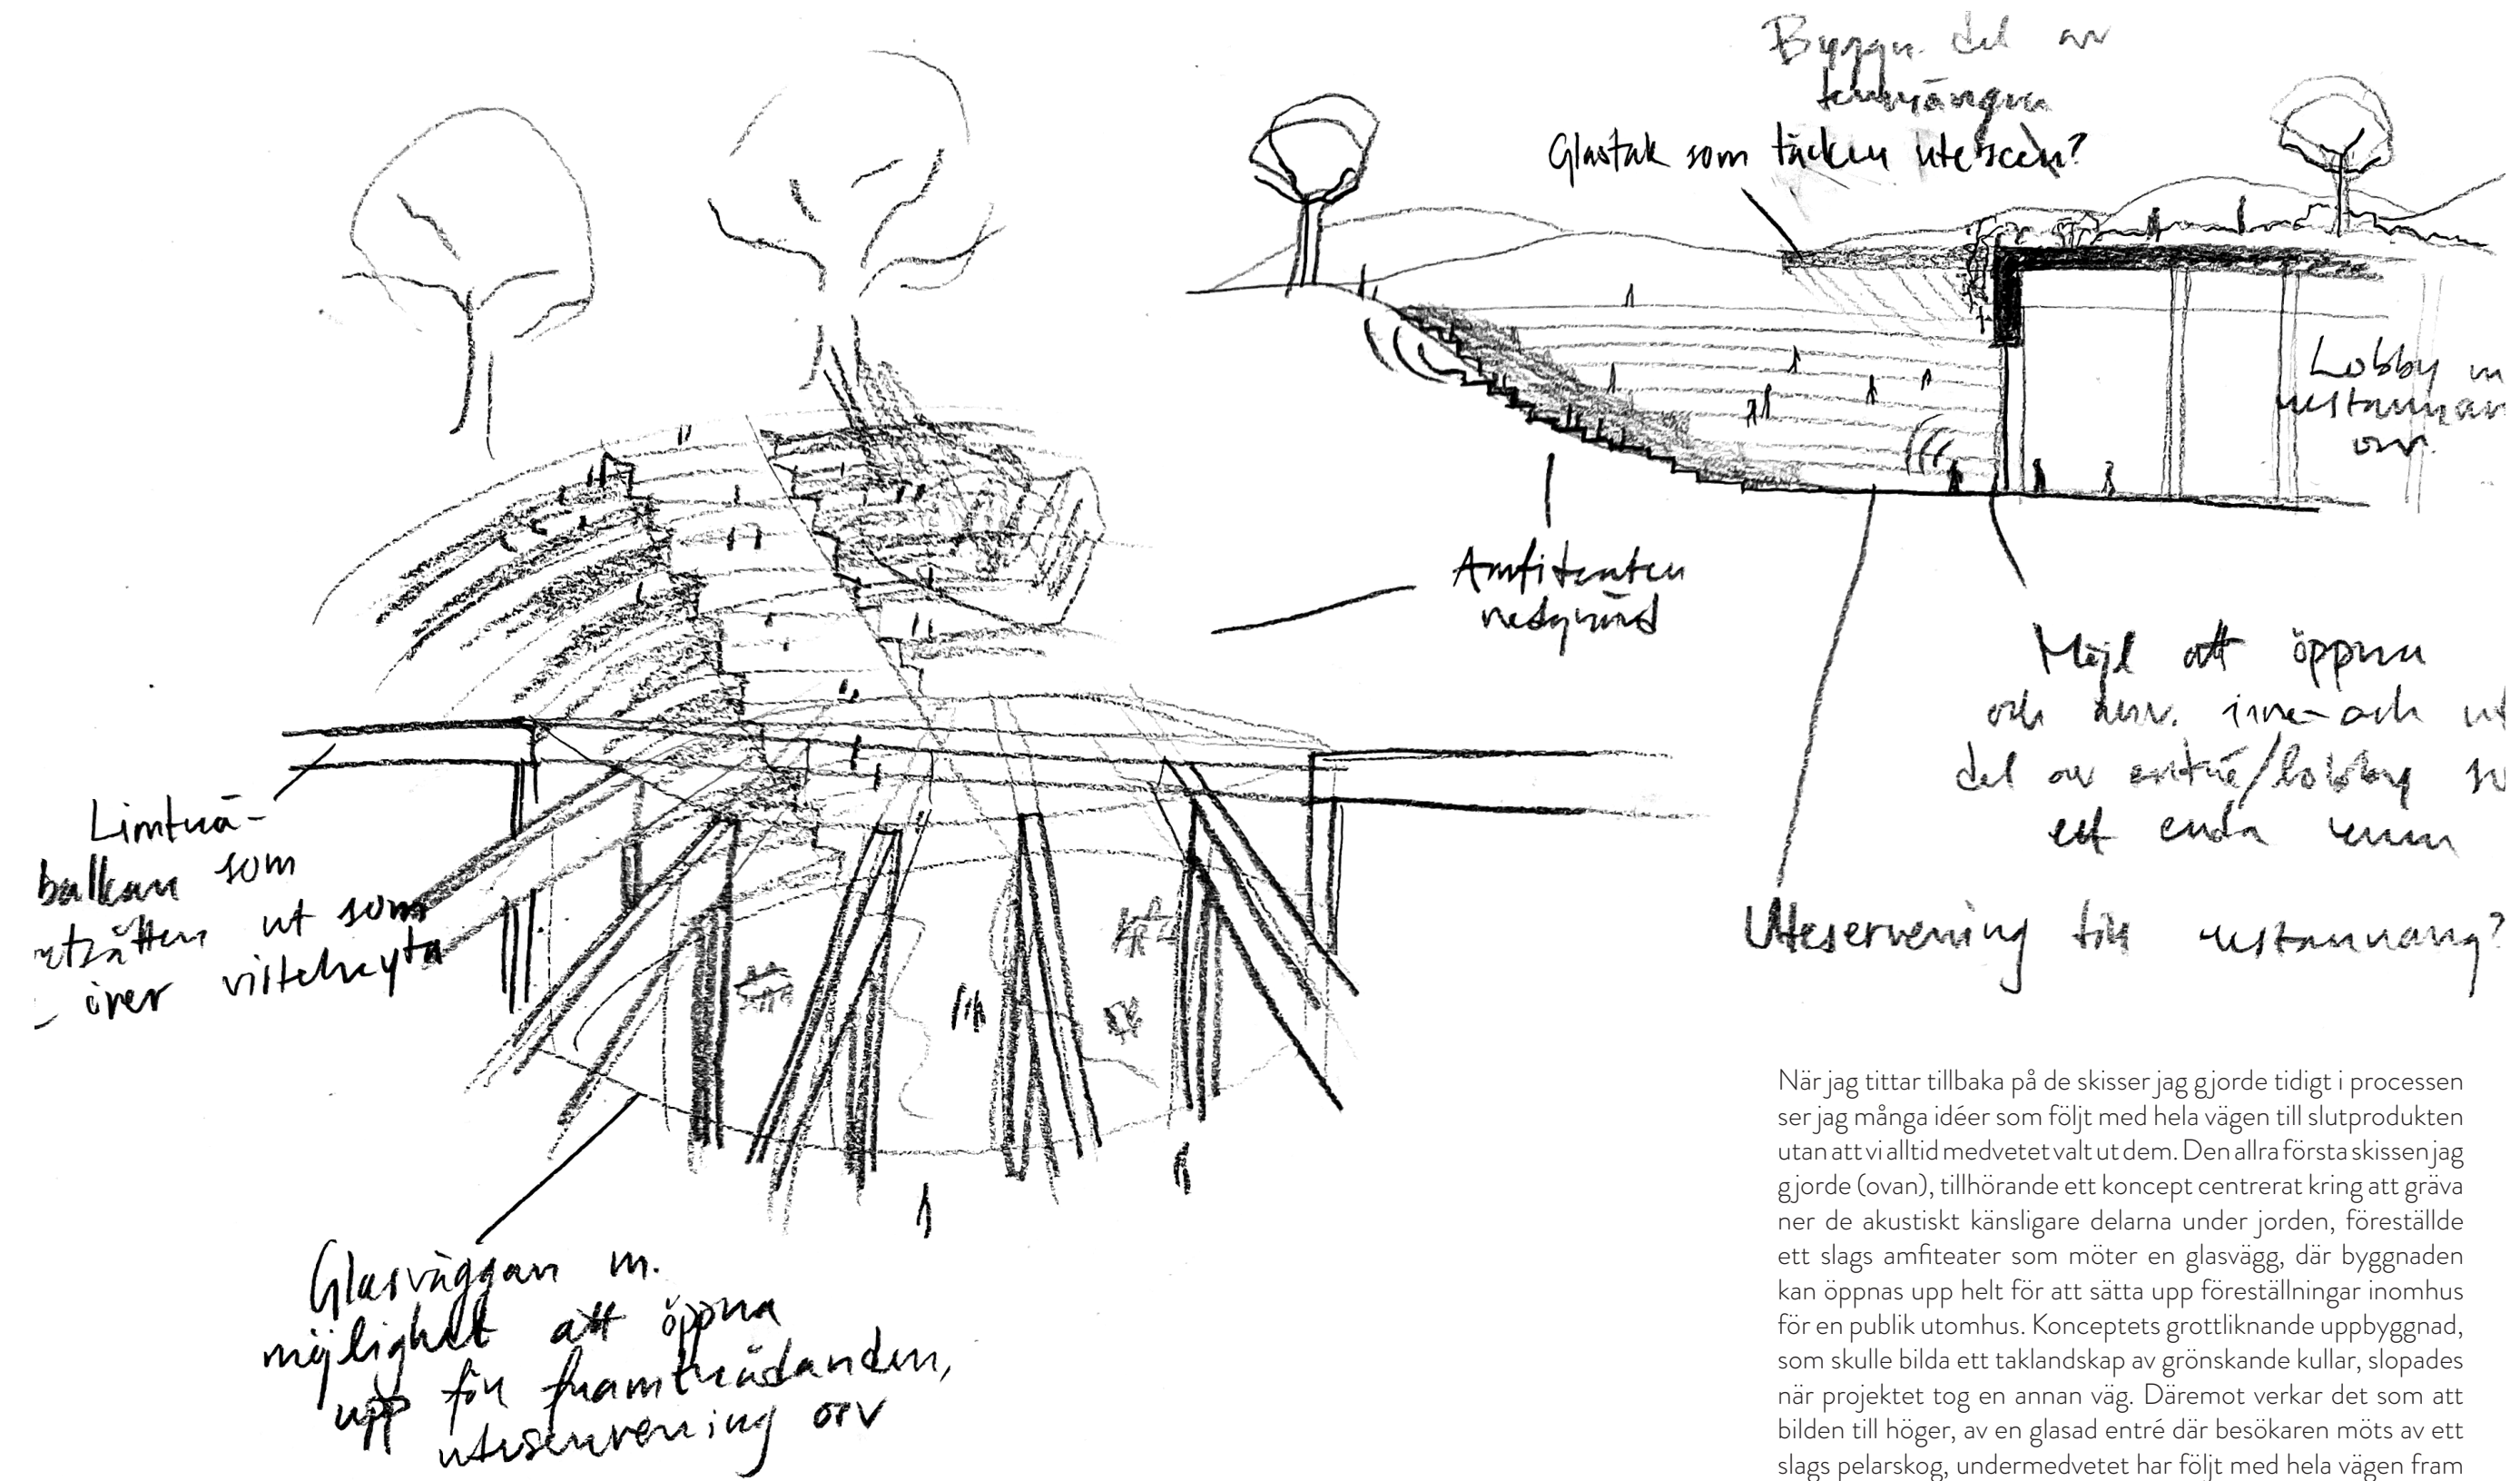 Byggn. del av
terrängen
Glastak som täcker utescen?
Lobby m
restauran
osv.
Amfiteater
nedgrävd
Möjl att öppna
och anv. inne- och ut
del av entré/lobby s
ett enda rum
Uteservering till restaurang?
Limträ-
balkar som
ut som
över vistelseyta
Glasväggar m.
möjlighet att öppna
upp för framträdanden,
uteservering osv
När jag tittar tillbaka på de skisser jag gjorde tidigt i processen
ser jag många idéer som följt med hela vägen till slutprodukten
utan att vi alltid medvetet valt ut dem. Den allra första skissen jag
gjorde (ovan), tillhörande ett koncept centrerat kring att gräva
ner de akustiskt känsligare delarna under jorden, föreställde
ett slags amfiteater som möter en glasvägg, där byggnaden
kan öppnas upp helt för att sätta upp föreställningar inomhus
för en publik utomhus. Konceptets grottliknande uppbyggnad,
som skulle bilda ett taklandskap av grönskande kullar, slopades
när projektet tog en annan väg. Däremot verkar det som att
bilden till höger, av en glasad entré där besökaren möts av ett
slags pelarskog, undermedvetet har följt med hela vägen fram